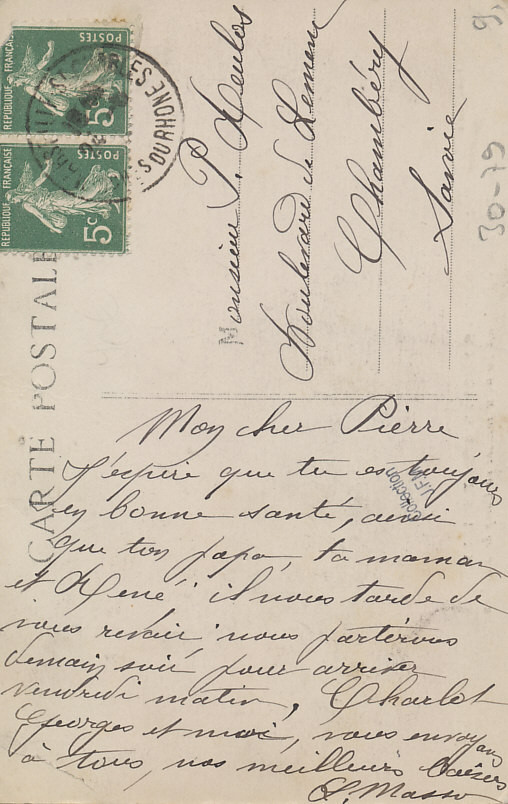 CARTE POSTALE
REPUBLIQUE FRANÇAISE
POSTES
5c
REPUBLIQUE FRANÇAISE
POSTES
5c
DU RHONE
Monsieur P.
Boulevard de Lemenc
Chambéry
Savoie
30-79
9,
Mon cher Pierre
J'espère que tu es toujours
en bonne santé, ainsi
que ton papa, ta maman
et René, il nous tarde de
vous revoir, nous partirons
demain soir pour arriver
vendredi matin, Charlot
Georges et moi, vous envoyons
à tous, nos meilleurs baisers
Collection